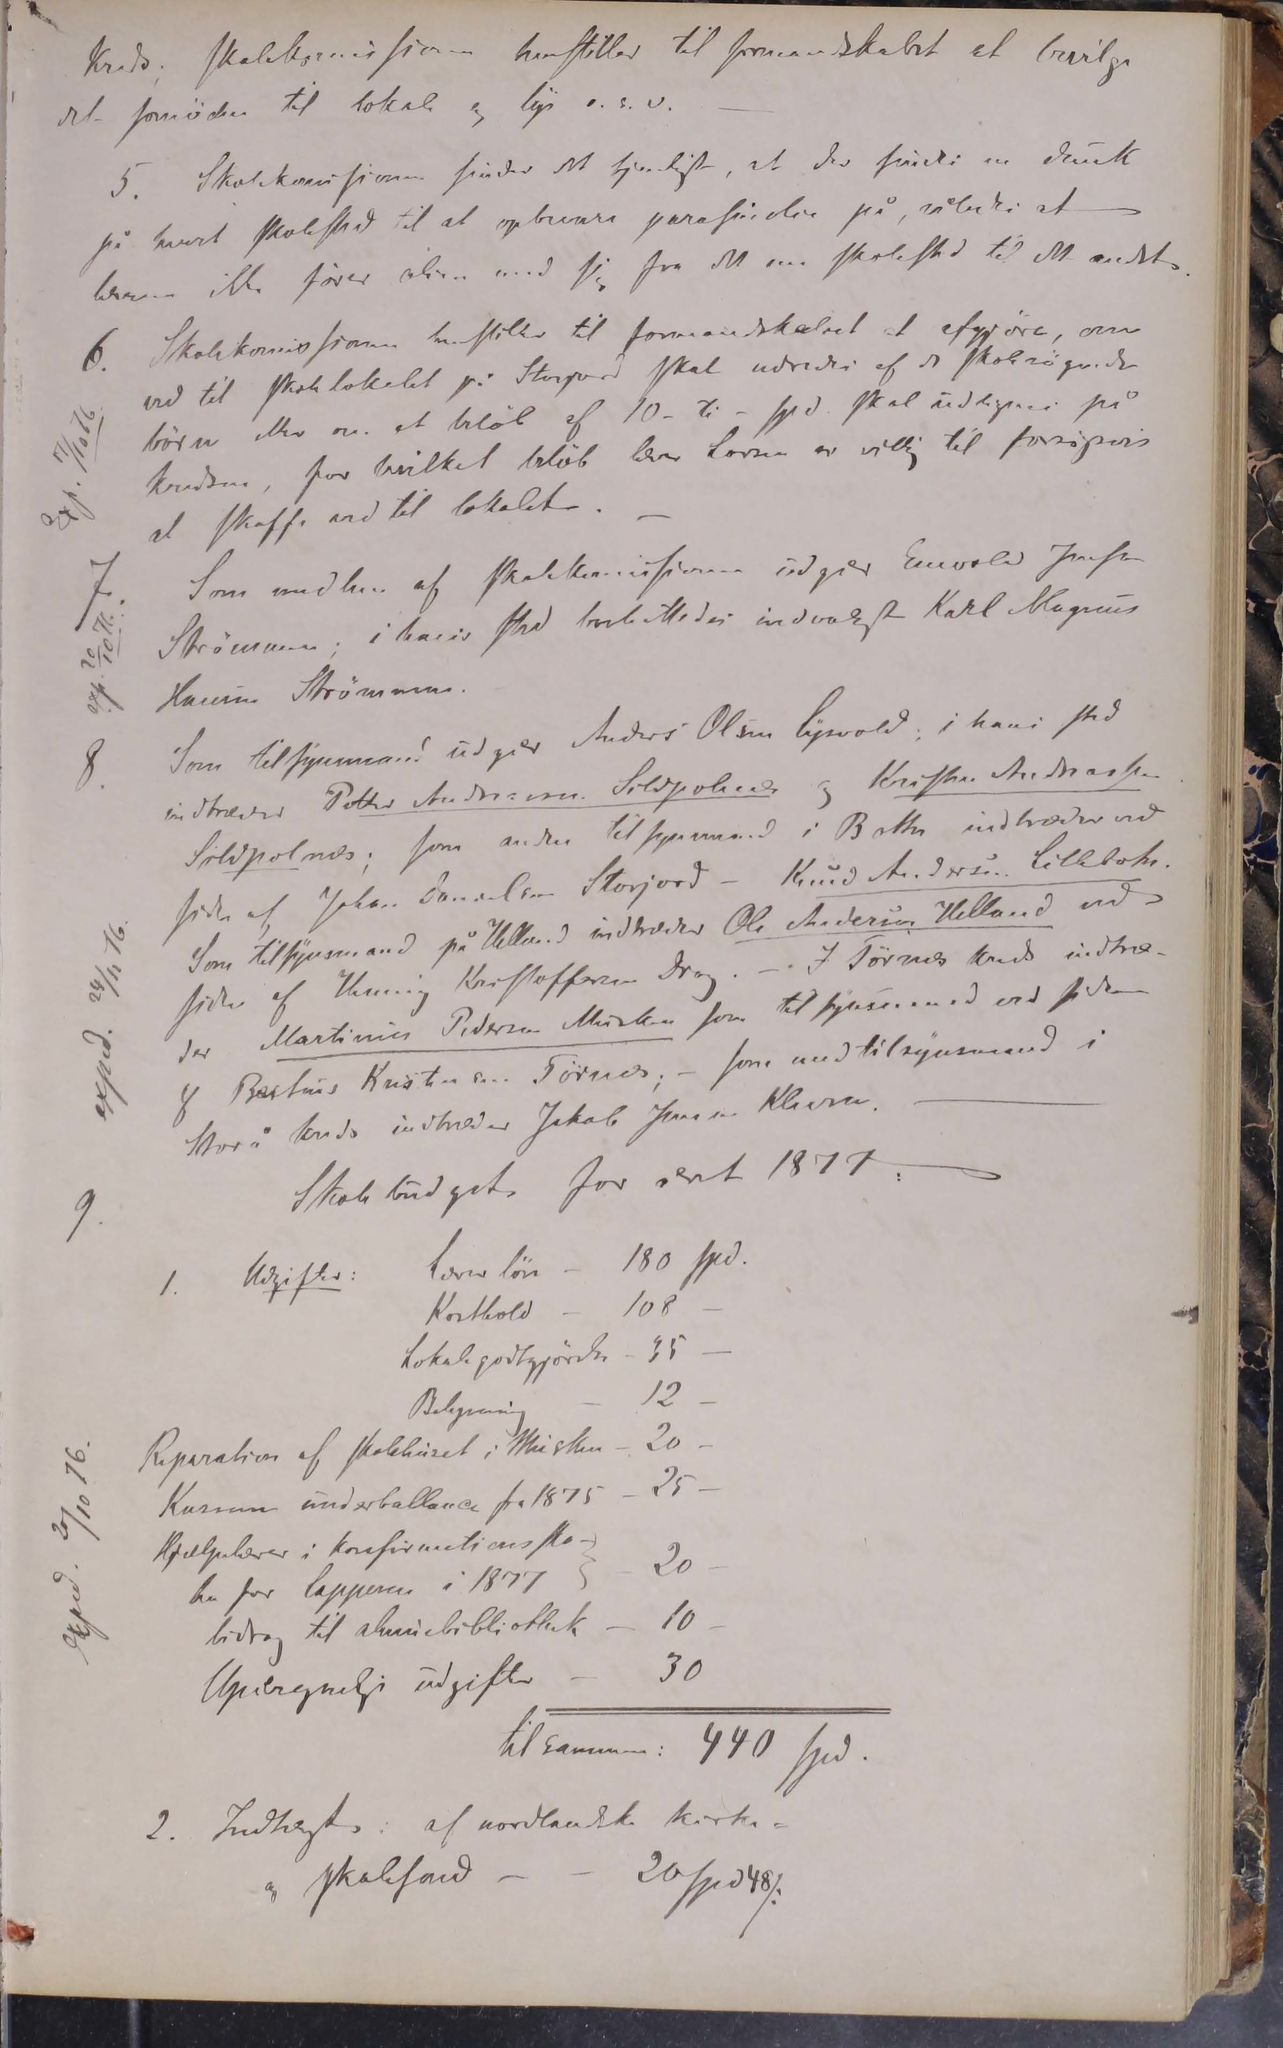 kreds; skolekomissionen henstiller til formandskabet at bevilge
det fornödne til lokale og lys o.s.v. —
5. Skolekomissionen finder det tjenligst, at der findes en
på hvert skolested til at opbevare på, således at
læreren ikke förer med sig fra det ene skolested til det andet.
6. Skolekomissionen henstiller til formandskabet at afgjöre, om
ved til skolelokalet på Storjord skal udredes af de skolesögende
börn eller om et belöb af 10 - ti - spd. skal udlignes på
kredsen, for hvilket belöb lærer Larsen er villig til forsögsvis
at skaffe ved til lokalet. —
exp. 7/10 76.
7. Som medlem af skolekomissionen udgår Enevold Jensen
Strömmen; i hans sted indvalgt Karl Magnus
Hansen Strömmen.
exp. 20/10 76.
8. Som tilsynsmand udgår Anders Olsen Lysvold; i hans sted
indtræder Petter Andersen Sildpolnes og Kristen Andreassen
Sildpolnes; som anden tilsynsmand i indtræder ved
siden af Johan Danielsen Storjord – Knud Andersen
Som tilsynsmand på Helland indtræder Ole Andersen Helland ved
siden af Henning Kristoffersen Drag. — I Törnes kreds indtræ-
der Martinus Pedersen Musken som tilsynsmand ved siden
af Kristensen Törnes; – som medtilsynsmand i
Storå kreds indtræder Jakob Jensen
exped. 24/11 76.
9. Skolebudget for året 1877:
1. Udgifter: Lærerlön – 180 spd.
Kosthold – 108 –
Lokalegodtgjörelse – 35 –
Belysning – 12 –
Reparation af skolehuset i Musken – 20 –
Kassens underballance fra 1875 – 25 –
Hjælpelærer i konfirmationssko-
len for lapperne i 1877 – 20 –
bidrag til almuebibliothek – 10 –
Uberegnelige udgifter – 30
tilsammen: 440 spd.
exped. 20/10 76.
2. Indtægt: af nordlandske kirke-
og skolefond – – 20 spd 48